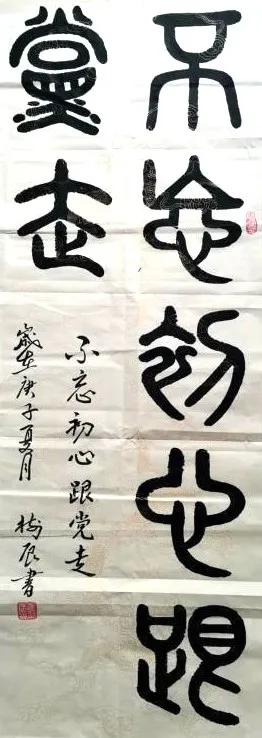 不忘初心跟
黨走
不忘初心跟党走
歲在庚子夏月
梅辰書